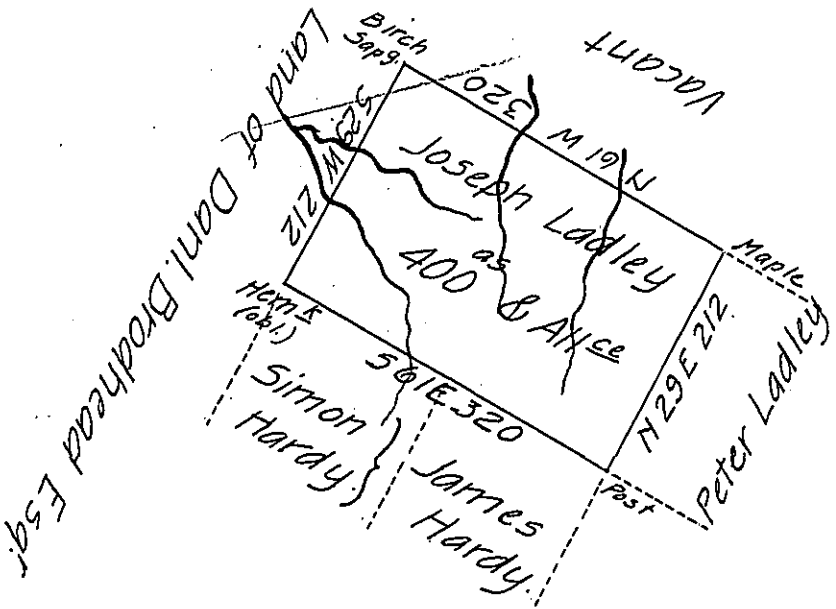 Birch
Sapg.
Vacant
Land of Danl. Brodhead Esqr.
S 29 W 212
N 61 W 320
Joseph Ladley
400 as & Allce
Maple
N 29 E 212
Peter Ladley
Hemk
(obl.)
S 61 E 320
Post
Simon
Hardy.
James
Hardy.